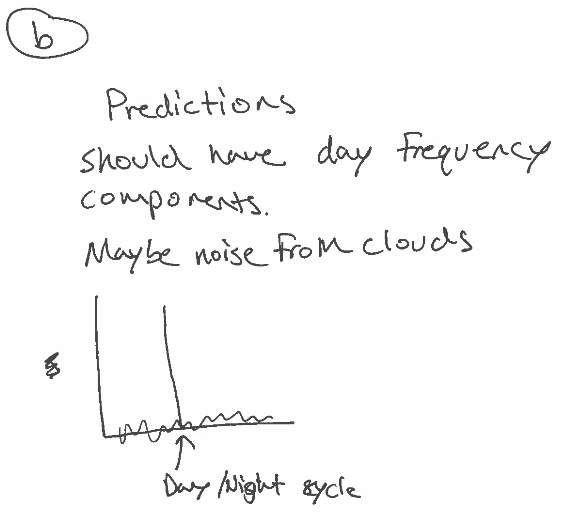 b
Predictions
should have day frequency
components.
Maybe noise from clouds
Day/Night cycle